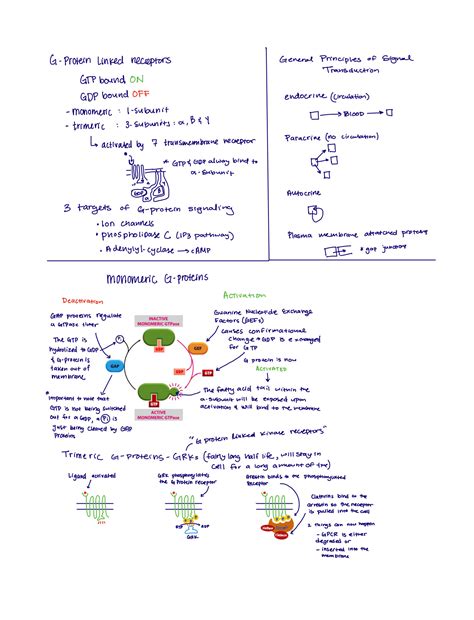 G-Protein Linked receptors
GTP bound ON
GDP bound OFF
- monomeric : 1-subunit
- trimeric : 3-subunits : α, β & γ
↳ activated by 7 transmembrane receptor
* GTP & GDP always bind to
α-subunit
3 targets of G-protein signaling
• Ion channels
• phospholipase C (IP3 pathway)
• Adenylyl-cyclase → cAMP
General Principles of Signal
Transduction
endocrine (circulation)
→ BLOOD →
Paracrine (no circulation)
Autocrine
Plasma membrane attatched proteins
* gap junctions
monomeric G-proteins
Deactivation
GAP proteins regulate
a GTPase timer
The GTP is
hydrolized → GDP
& G-protein is
taken out of
membrane.
*Important to note that
GTP is not being switched
out for a GDP, a Pi is
just being cleaved by GAP
Proteins
INACTIVE
MONOMERIC GTPase
GDP
Pi
GAP
GEF
GDP
GTP
GTP
ACTIVE
MONOMERIC GTPase
Activation
Guanine Nucleotide Exchange
Factors (GEFs)
causes confirmational
change → GDP is exchanged
for GTP
G protein is now
ACTIVATED
The fatty acid tail within the
α-subunit will be exposed upon
activation & will bind to the membrane
"G protein linked kinase receptors"
Trimeric G-proteins - GRKs (fairly long half life, will stay in
cell for a long amount of time)
Ligand activated
GRK phosphorylates
the G Protein receptor
ATP
ADP
GRK
Arrestin binds to the phosphorylated
Receptor
Clathrins bind to the
arrestin so the receptor
is pulled into the cell
2 things can now happen
- GPCR is either
degraded or
- inserted into the
membrane